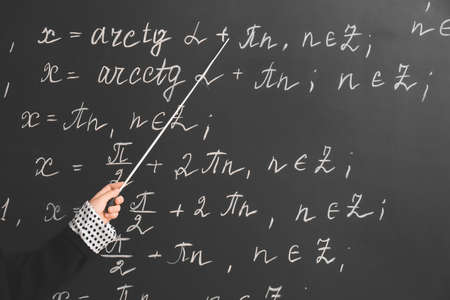 , x = arctg α + πn, n ∈ Z; n
x = arcctg α + πn; n ∈ Z;
x = πn, n ∈ Z;
x = π/2 + 2πn, n ∈ Z;
1, x π/2 + 2πn, n ∈ Z;
π/2 + πn, n ∈ Z;